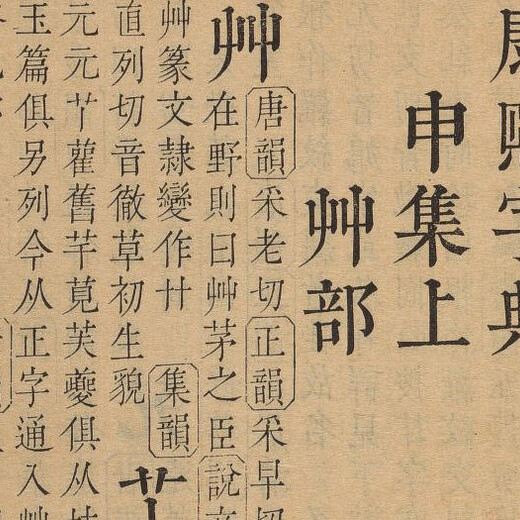 康熙字典
申集上
艸部
唐韻采老切正韻采早切
艸在野則曰艸茅之臣說文
艸篆文隷變作廾 集韻
直列切音徹草初生貌 艹
元元丫雚舊芊萈芙夔俱从
玉篇俱另列今从正字通入艸